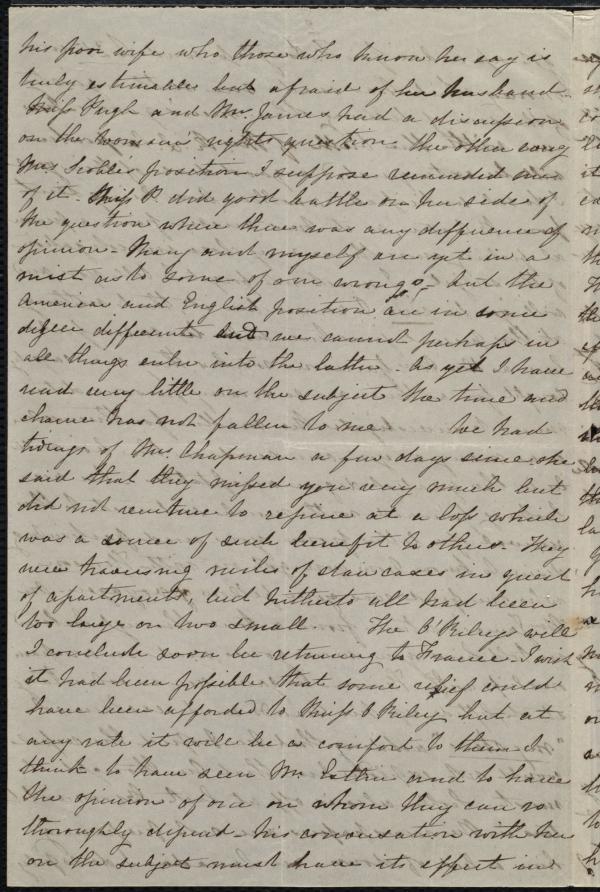 his poor wife who those who know her say is
truly estimable but afraid of her husband.
Miss Pugh and Mr. James had a discussion
on the woman's rights question the other eveng
Mrs position I suppose reminded
of it. Miss P. did good battle on her side of
the question where there was any difference of
opinion. Mary and myself are yet in a
mist as to some of our wrongs. but the
American and English position are in some
degree different and we cannot perhaps in
all things enter into the latter. As yet I have
read very little on the subject the time and
chance has not fallen to me. We had
tidings of Mrs. Chapman a few days since she
said that they missed you very much but
did not venture to repine at a loss which
was a source of such benefit to others. They
were traversing miles of stair cases in quest
of apartments, but hitherto all had been
too large or two small. The O'Rileys will
I conclude soon be returning to France. I wish
it had been possible that some relief could
have been afforded to Miss O Riley but at
any rate it will be a comfort to them I
think to have seen Mr. Estlin and to have
the opinion of one on whom they can so
thoroughly depend. his conversation with her
on the subject must have its effect in